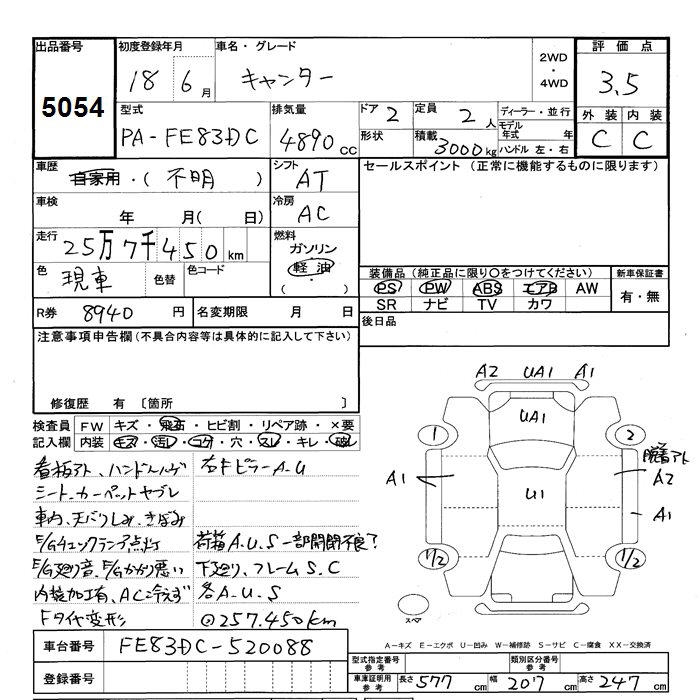 出品番号
5054
初度登録年月
18 6 月
車名・グレード
キャンター
2WD
・
4WD
評価点
3.5
外装 内装
C C
型式
PA-FE83DC
排気量
4890 cc
ドア 2
形状
定員 2 人
積載 3000 kg
ディーラー・並行
モデル年式 年
ハンドル 左・右
車歴
自家用・( 不明 )
シフト
AT
車検
年 月( 日)
冷房
AC
走行
25万7千450 km
燃料
ガソリン
軽油
( ・ )
色
現車
色替
色コード
R券 8940 円
名変期限 月 日
セールスポイント (正常に機能するものに限ります)
装備品 (純正品に限り○をつけてください)
PS PW ABS エアB AW
SR ナビ TV カワ
新車保証書
有・無
後日品
注意事項申告欄 (不具合内容等は具体的に記入して下さい)
修復歴 有 〔箇所 〕
検査員 FW キズ・飛石・ヒビ割・リペア跡・×要
記入欄 内装 キズ・汚レ・コゲ・穴・スレ・キレ・破レ
看板アト、ハンドルハゲ
右FピラーA-U
シート、カーペットヤブレ
車内、天バリしみ、きばみ
E/Gチェックランプ点灯
荷箱A.U.S 一部開閉不良?
E/G廻り音、E/Gかかり悪い
下廻り、フレームS.C
内装加工有、AC冷えず
各A.U.S
Fタイヤ変形
◎257.450km
A2 UA1 A1
UA1
1 2
脱着アト
A1 U1 A2
A1
1/2 1/2
スペア
A-キズ E-エクボ U-凹み W-補修跡 S-サビ C-腐食 XX-交換済
車台番号 FE83DC-520088
登録番号
型式指定番号
参考
類別区分番号
参考
車庫証明用
参考
長さ 577 cm 幅 207 cm 高さ 247 cm